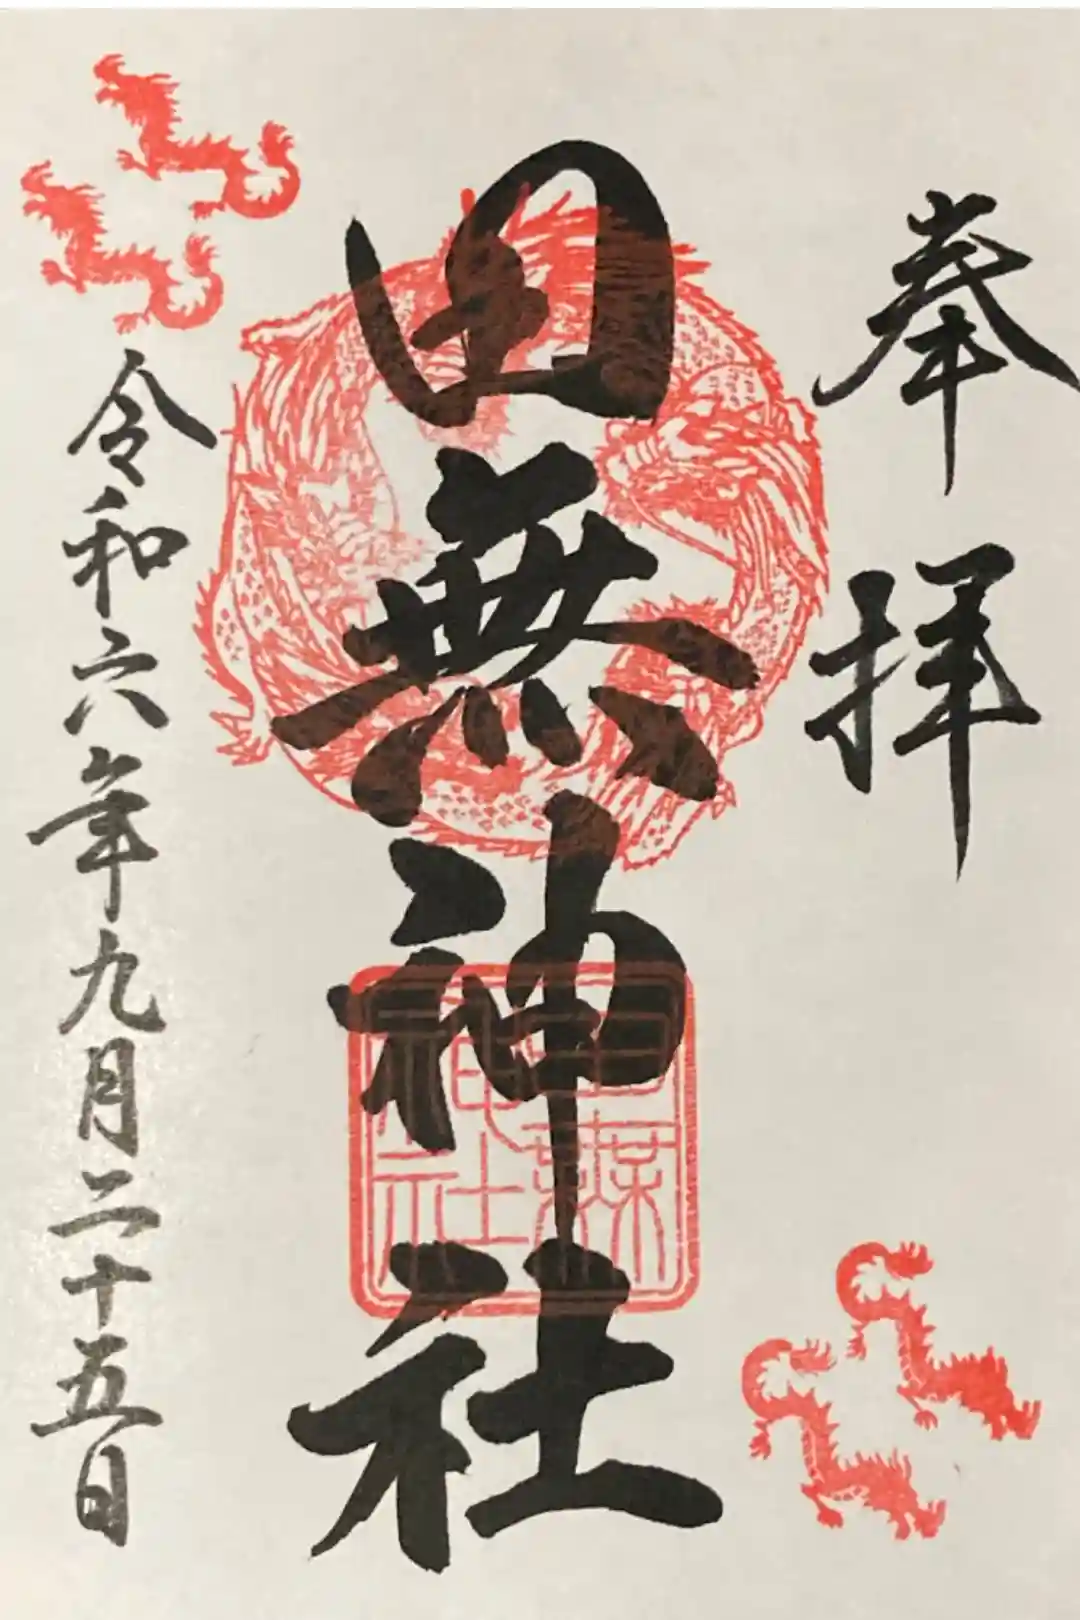 奉拝
田無神社
田無神社
令和六年九月二十五日